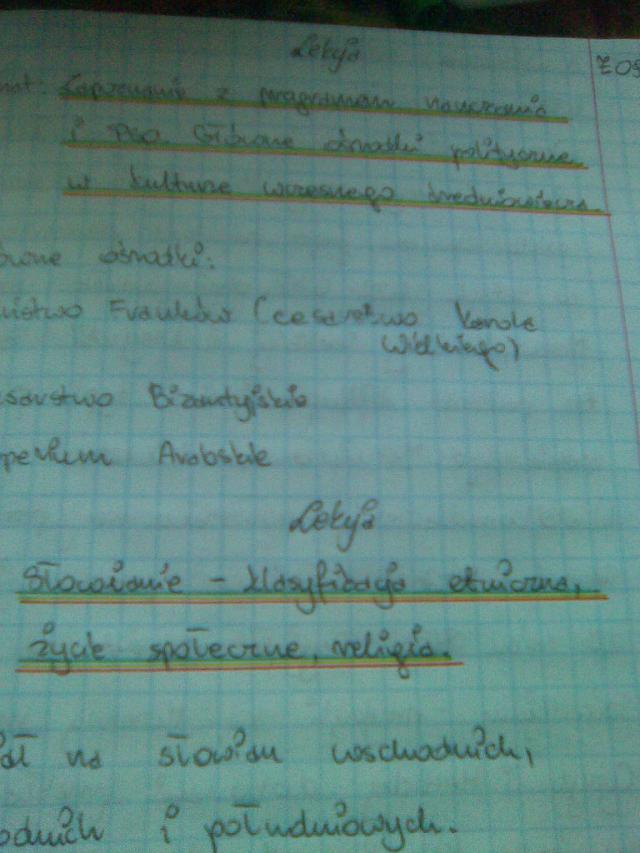 Lekcja
Zapoznanie z programem nauczania
i PSO. Główne ośrodki polityczne
w kulturze wczesnego średniowiecza.
ośrodki:
Franków (cesarstwo Karola
Wielkiego)
Bizantyjskie
Arabskie
Lekcja
Słowianie - klasyfikacja etniczna,
życie społeczne, religia.
na słowian wschodnich,
i południowych.